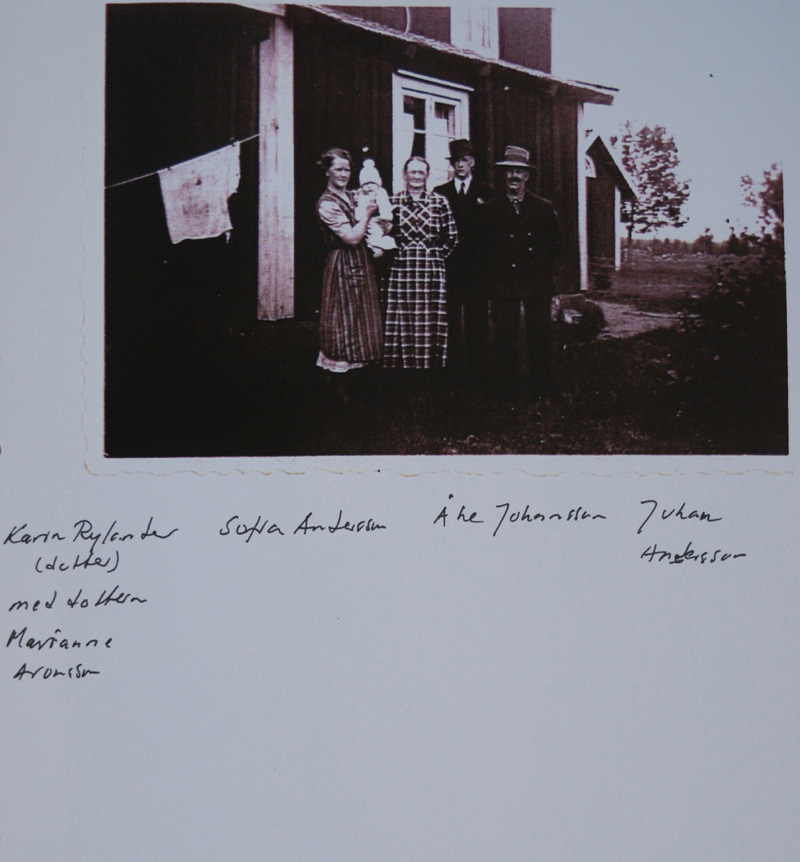 Karin Rylander
(dotter)
med dottern
Marianne
Aronsson
Sofia Andersson
Åke Johansson
Johan
Andersson